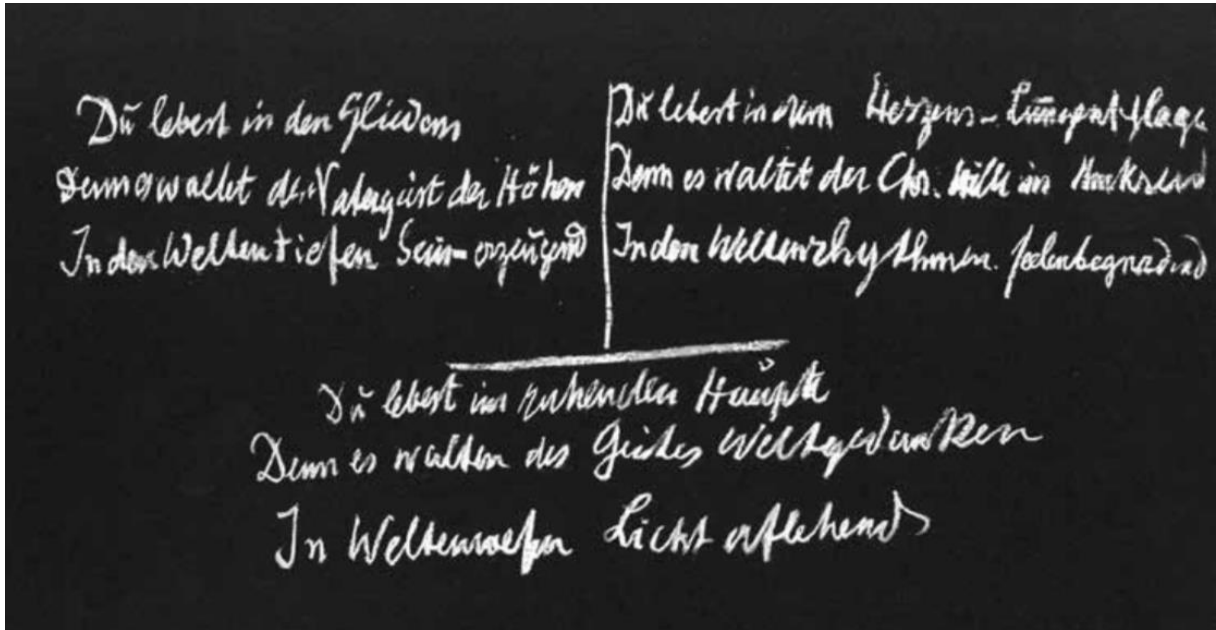 Du lebest in den Gliedern
Denn es waltet der Vatergeist der Höhen
In den Weltentiefen Sein-erzeugend
Du lebest in dem Herzens-Lungenschlage
Denn es waltet der Chr. Will im Umkreis
In den Weltenrhythmen. Seelenbegnadend
Du lebest im ruhenden Haupte
Denn es walten des Geistes Weltgedanken
In Weltenwesen Licht erflehend